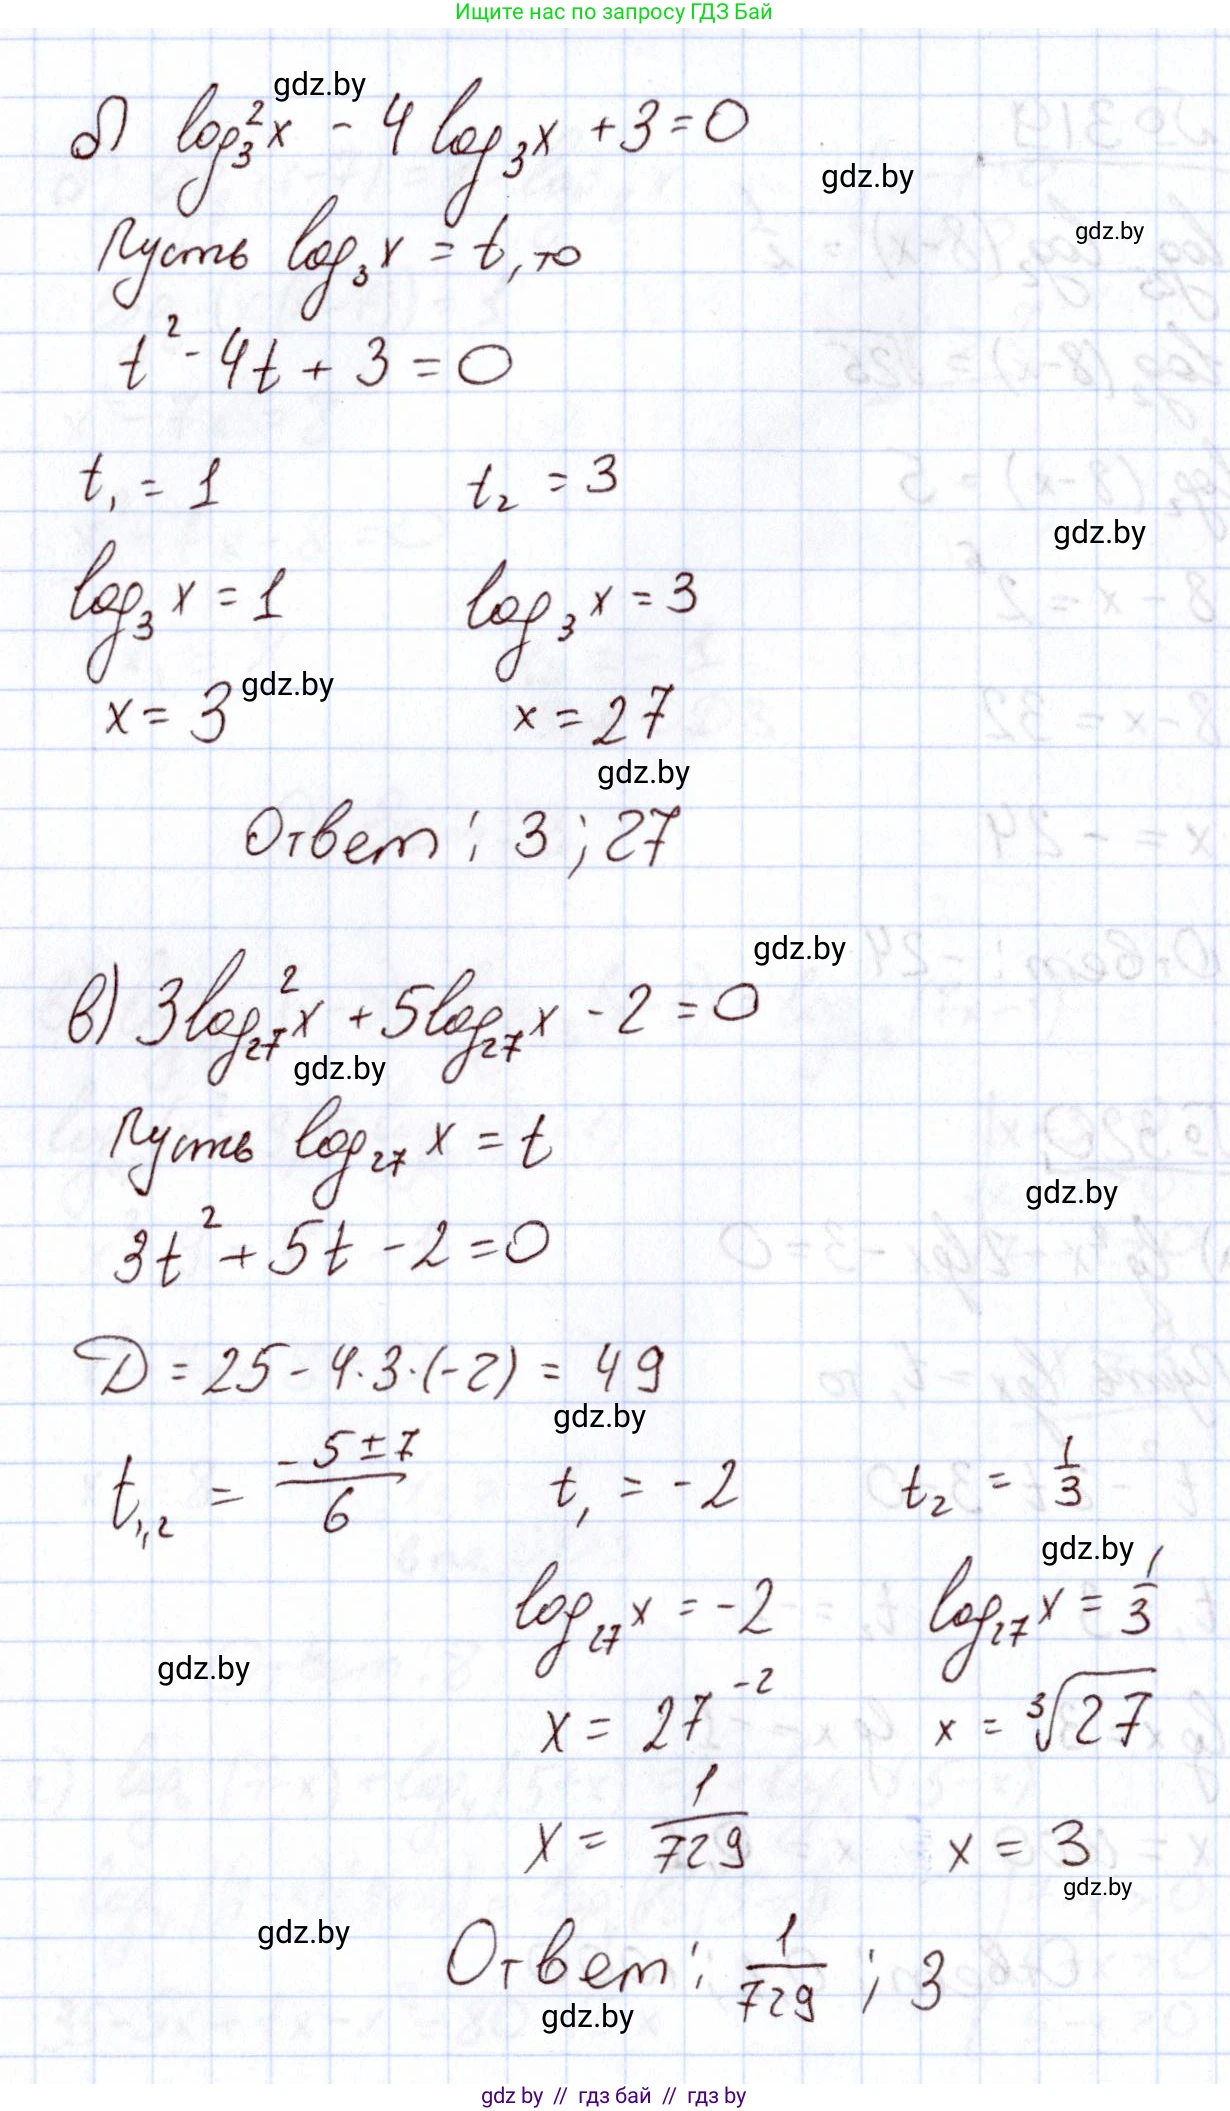 Ищите нас по запросу ГДЗ Бай
gdz.by
б) log₃²x - 4 log₃x + 3 = 0
gdz.by
gdz.by
Пусть log₃x = t, то
t² - 4t + 3 = 0
t₁ = 1 t₂ = 3
gdz.by
log₃x = 1 log₃x = 3
gdz.by
x = 3 x = 27
gdz.by
Ответ: 3; 27
gdz.by
в) 3log₂₇²x + 5log₂₇x - 2 = 0
gdz.by
Пусть log₂₇x = t
gdz.by
3t² + 5t - 2 = 0
D = 25 - 4·3·(-2) = 49
gdz.by
t₁,₂ = (-5±7)/6 t₁ = -2 t₂ = 1/3
gdz.by
log₂₇x = -2 log₂₇x = 1/3
gdz.by
x = 27⁻² x = ∛27
x = 1/729 x = 3
gdz.by
gdz.by
Ответ: 1/729; 3
gdz.by
gdz by // гдз бай // гдз by